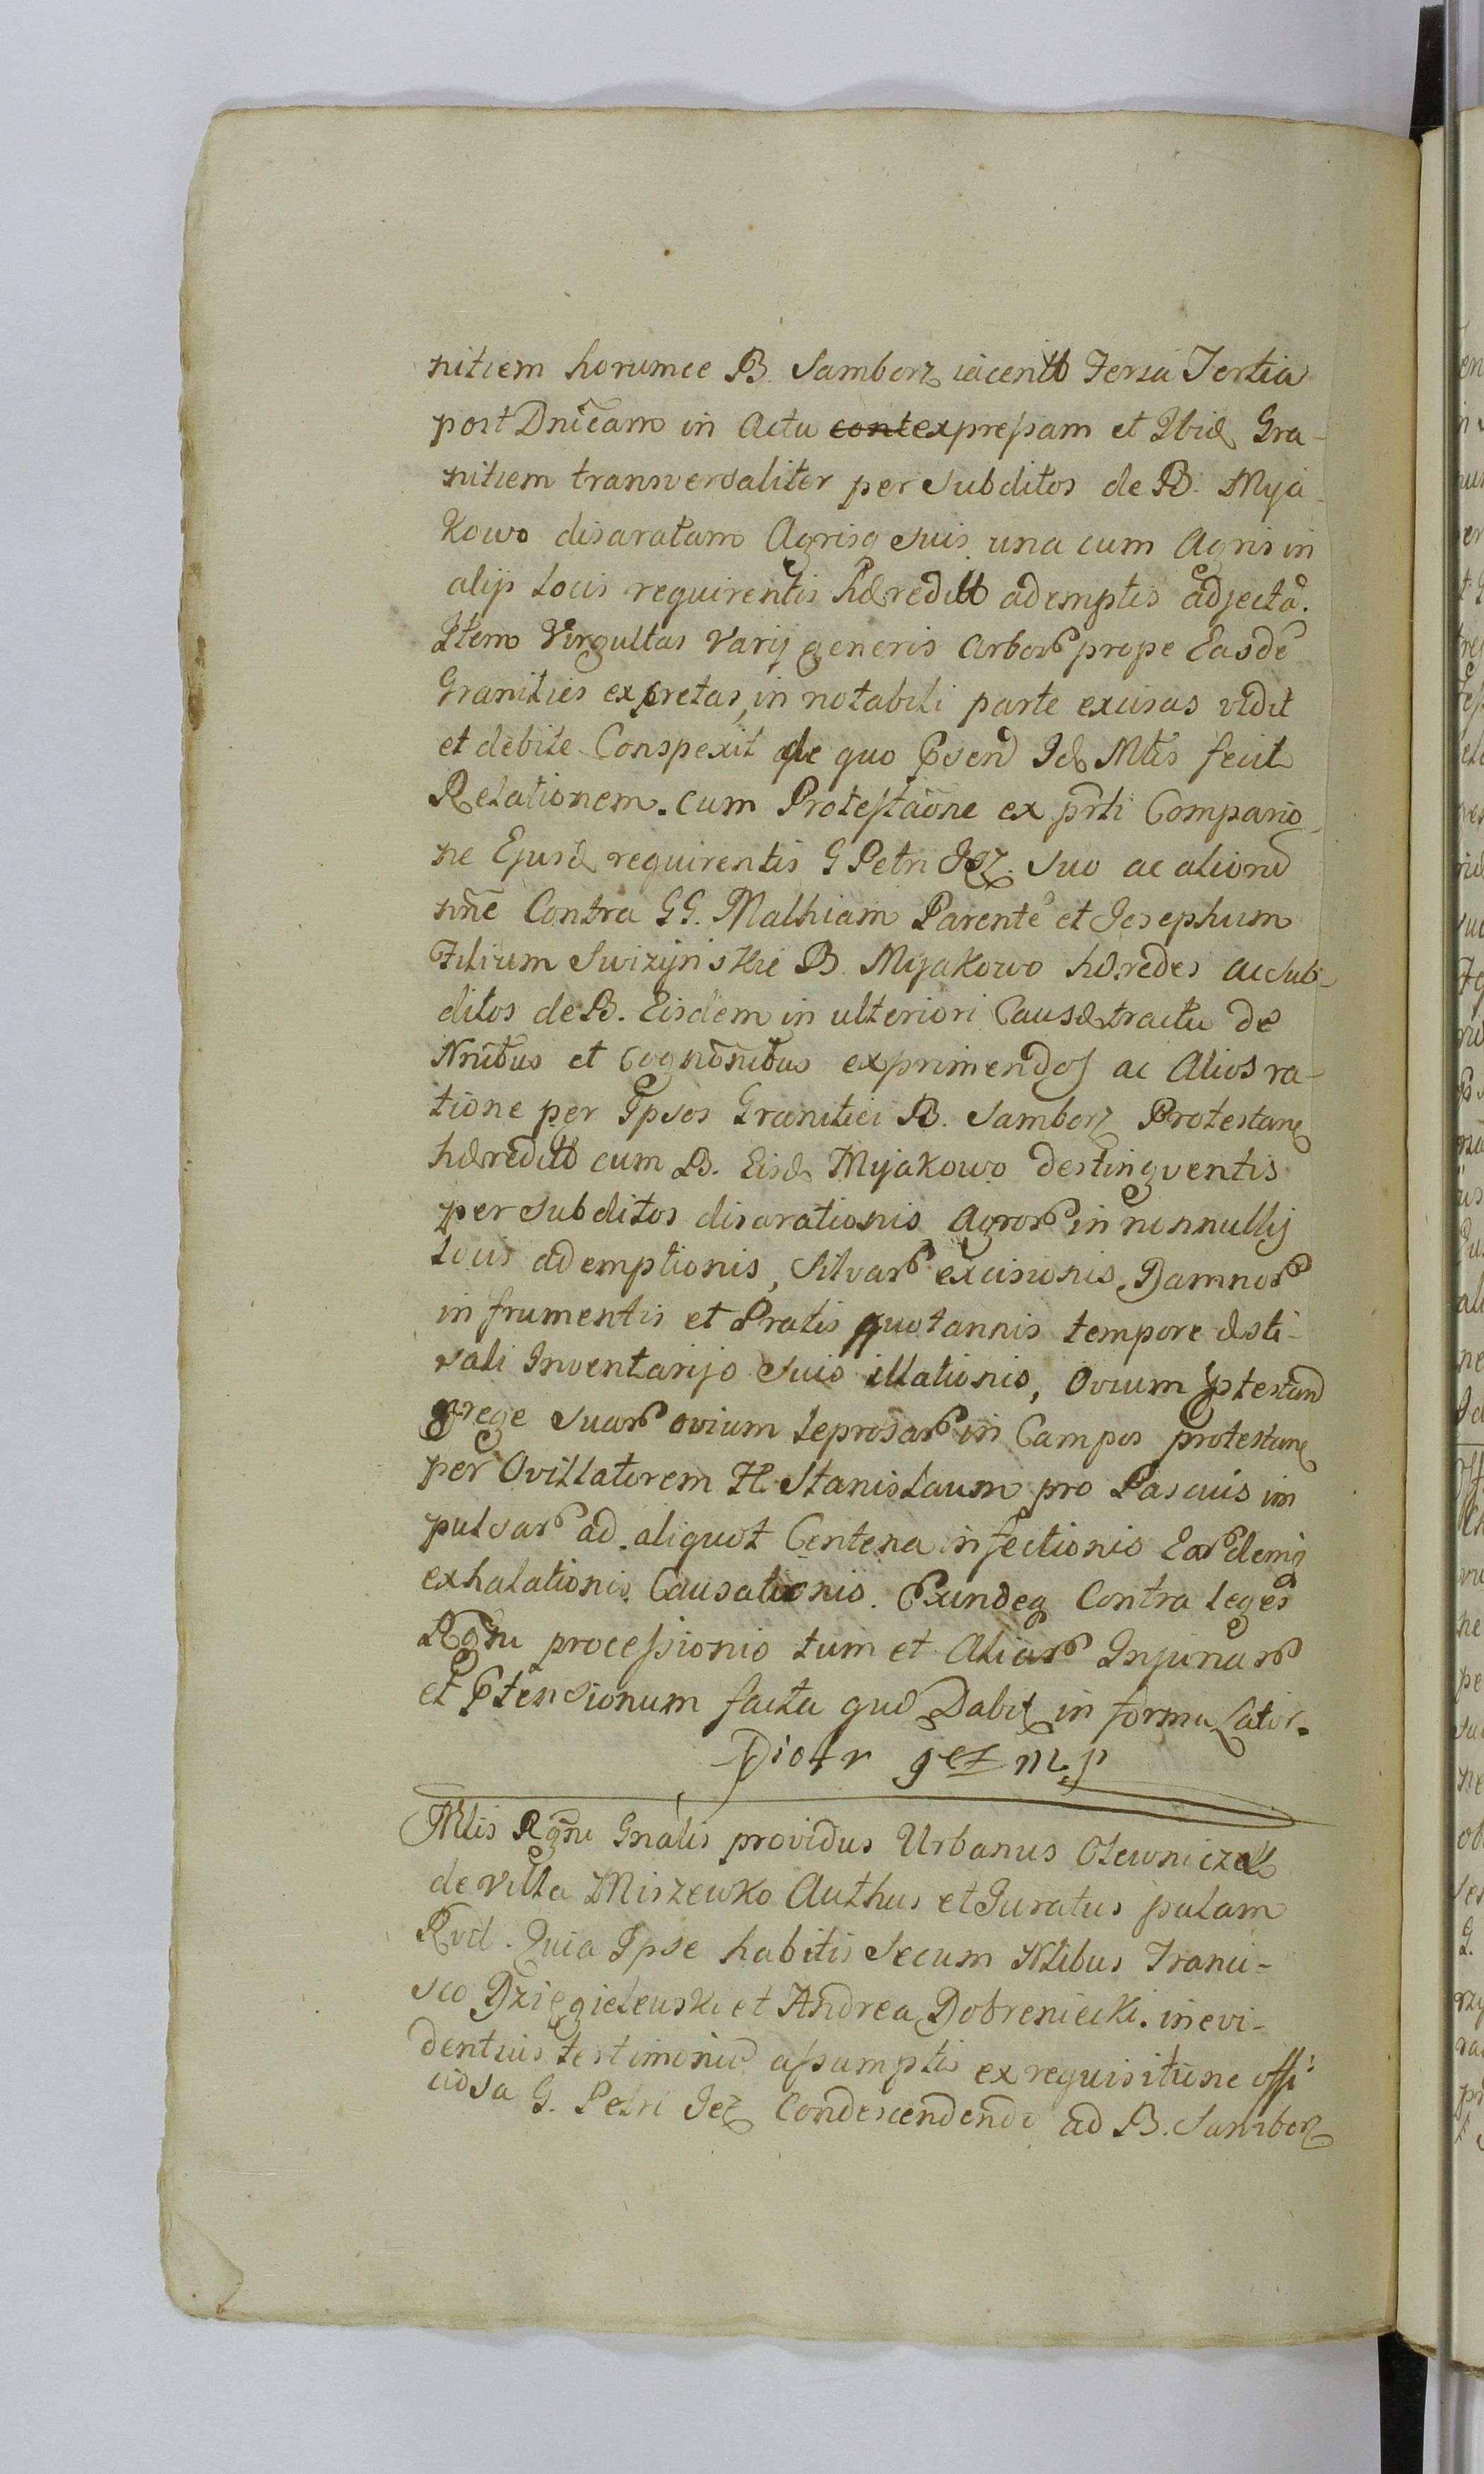 nitiem horumce B. Samborz iacentt Feria Tertia
post Dnicam in Actu cont expressam et Ibid Gra-
nitiem transversaliter per Subditos de B. Mya-
kowo disaratam Agrisq suis una cum Agris in
alijs Locis requirentis hæreditt ademptis adjectã.
Item Virgultas Varij generis Arbor prope Easdẽ
Granities excretas, in notabili parte excisas vidit
et debite Conspexit de quo Id Mtis fecit
Relationem. cum Protestaõne ex prti Compario-
ne Ejusd requirentis G Petri Jez. suo ac aliorũ
nñe Contra GG. Mathiam Parentẽ et Josephum
Filium Swizynskie B. Myakowo hæredes ac Sub-
ditos de B. Eisdem in ulteriori Causæ tractu de
Nnibus et Cognõnibus exprimendos ac Alios ra-
tione per Ipsos Granitiei B. Samborz Protestan
hæreditt cum B. Eisd Myakowo destinqventis
per Subditos disarationis Agror in nonnullis
Locis ademptionis, Silvar excisionis, Damnor
in frumentis et Pratis quotannis tempore æsti-
vali Inventarijs suis illationis, Ovium
grege suar ovium leprosar in Campos protestan
per Ovillatorem H. Stanislaum pro Pascuis im
pulsar ad aliquot Centena infectionis Eardemq
exhalationis Causationis. Exindeq Contra leges
Rgni processionis tum et Aliar Injuriar
et Ptensionum facta quæ Dabit in forma Lator.
Piotr Jez mp
Mtis Rgni Gnãlis providus Urbanus Olewniczak
de Villa Miszewko Authus et Juratus palam
Rvd. Quia Ipse habitis Secum Ntibus Franci-
sco Dzięgielewski et Andrea Dobreniecki. in evi-
dentius testimoniũ assumptis ex requisitione offi
ciosa G. Petri Jez Condescendendo ad B. Samborz